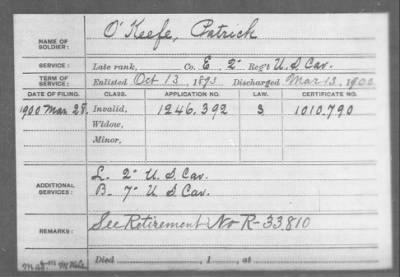 NAME OF SOLDIER: O'Keefe, Patrick
SERVICE: Late rank, Co. E, 2" Reg't U.S. Cav.
TERM OF SERVICE: Enlisted Oct 13, 1893 Discharged Mar 13, 1900
DATE OF FILING. CLASS. APPLICATION NO. LAW. CERTIFICATE NO.
1900 Mar 28. Invalid, 1246.392 S 1010.790
Widow,
Minor,
ADDITIONAL SERVICES: L. 2" U.S. Cav.
B- 7" U S. Cav.
REMARKS: See Retirement No R-33,810
Died , 1 , at